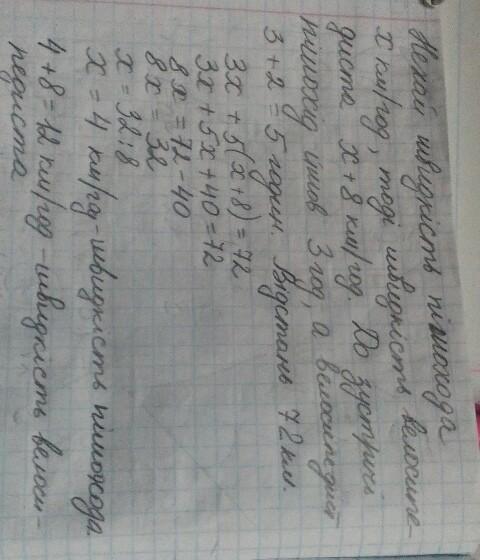 Нехай швидкість пішохода
x км/год, тоді швидкість велосипе-
диста x + 8 км/год. До зустрічі
пішохід ишов 3 год, а велосипедист
3 + 2 = 5 годин. Відстань 72 км.
3x + 5(x + 8) = 72
3x + 5x + 40 = 72
8x = 72 - 40
8x = 32
x = 32 : 8
x = 4 км/год - швидкість пішохода.
4 + 8 = 12 км/год - швидкість велоси-
педиста